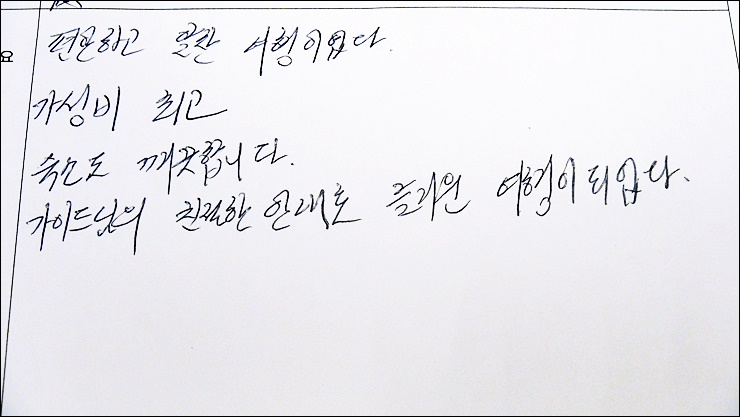 편안하고 알찬 여행이었다.
요
가성비 최고
숙소도 깨끗합니다.
가이드님의 친절한 안내로 즐거운 여행이 되었다.